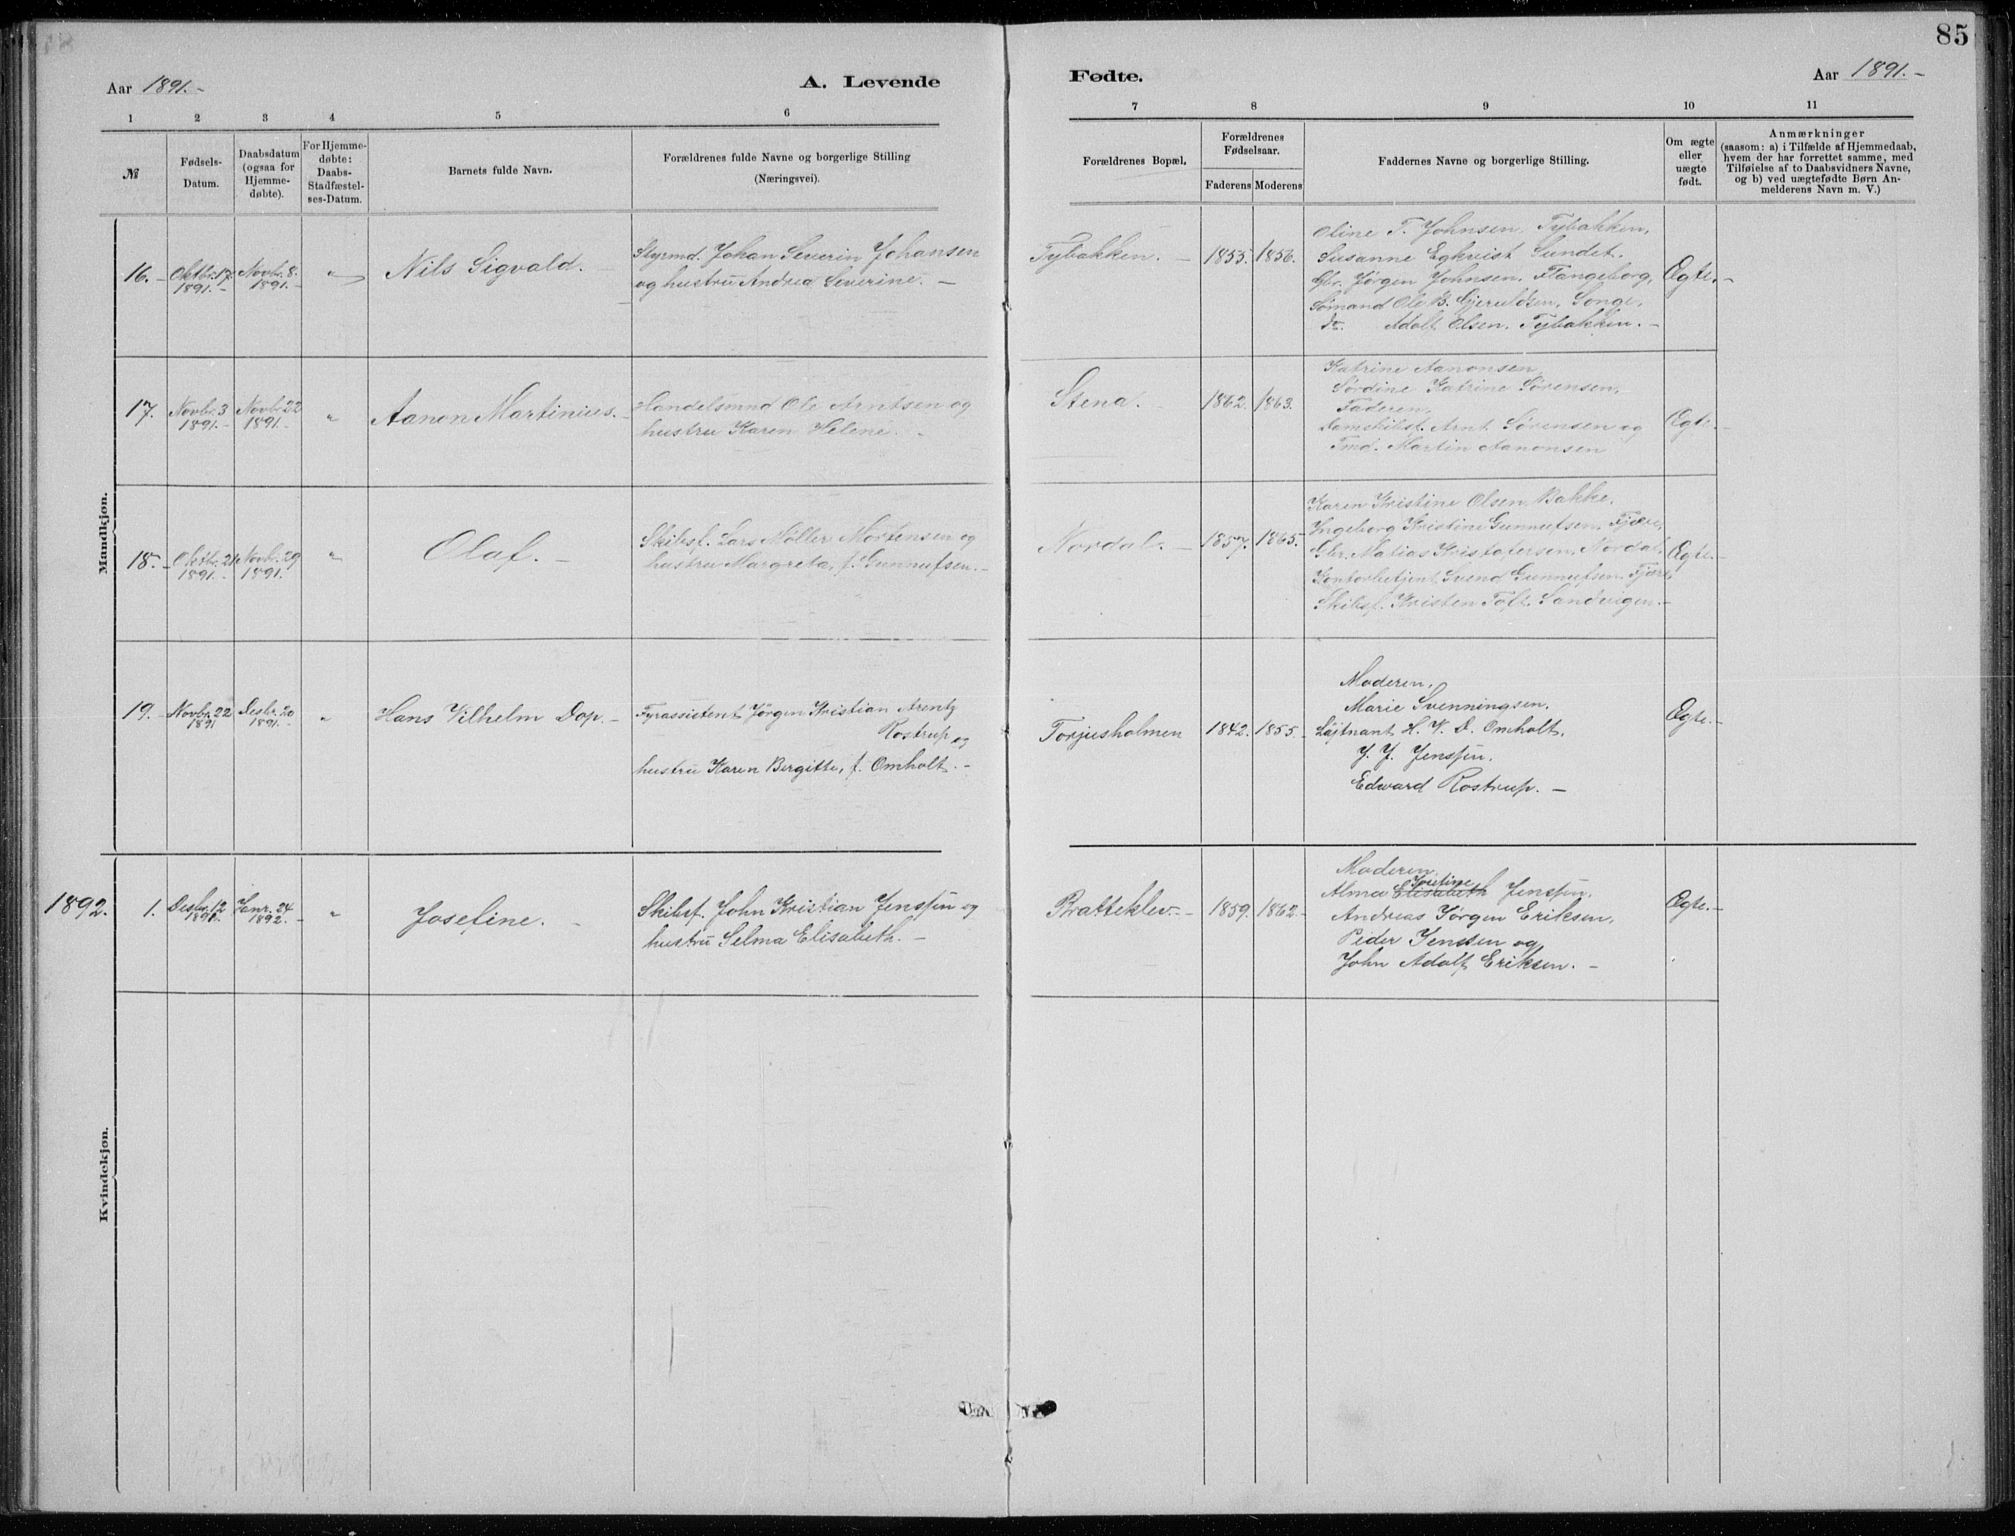 85
Aar 1891.-
A. Levende
Fødte.
Aar 1891.-
1 2 3 4 5 6 7 8 9 10 11
№
Fødsels-
Datum.
Daabsdatum
(ogsaa for
Hjemme-
døbte).
For Hjemme-
døbte:
Daabs-
Stadfæstel-
ses-Datum.
Barnets fulde Navn.
Forældrenes fulde Navne og borgerlige Stilling
(Næringsvei).
Forældrenes Bopæl.
Forældrenes
Fødselsaar.
Faderens Moderens
Faddernes Navne og borgerlige Stilling.
Om ægte
eller
uægte
født.
Anmærkninger
(saasom: a) i Tilfælde af Hjemmedaab,
hvem der har forrettet samme, med
Tilføielse af to Daabsvidners Navne,
og b) ved uægtefødte Børn An-
melderens Navn m. V.)
Mandkjøn.
16. Oktbr. 17. 1891.- Novbr. 8. 1891.- " Nils Sigvald. -
Styrmd. Johan Severin Johansen
og hustru Andrea Severine. -
Tybakken. - 1855. 1856.
Oline T. Johnsen, Tybakken,
Susanne Egkvist Sundet.
Gbr. Jørgen Johnsen, Flangeborg,
Sømand Ole B. Gjeruldsen, Songe,
do. Adolf Olsen, Tybakken. -
Ægte. -
17. Novbr. 3 1891.- Novbr. 22 1891.- " Aanon Martinius. -
Handelsmnd Ole Arntsen og
hustru Karen Helene. -
Stena. - 1862. 1863.
Katrine Aanonsen,
Sørdine Katrine Sørensen,
Faderen,
Damskibsf. Arnt Sørensen og
Tmd. Martin Aanonsen
Ægte. -
18. Oktbr. 21 1891.- Novbr. 29 1891.- " Olaf. -
Skibsf. Lars Møller Mortensen og
hustru Margreta, f. Gunnufsen. -
Nordal. - 1857. 1865.
Karen Kristine Olsen, Bakke.
Ingeborg Kristine Gunnufsen, Fjære,
Gbr. Matias Kristofersen, Nordal,
Kontorbetjent Svend Gunnufsen, Fjære,
Skibsf. Kristen Toft, Sandvigen. -
Ægte. -
19. Novbr. 22 1891 Desbr. 20 1891.- " Hans Vilhelm Dop. -
Fyrassistent Jørgen Kristian Arentz
Rostrup og
hustru Karen Bergitte, f. Omholt. -
Torjusholmen 1842. 1855. -
Moderen,
Marie Svenningsen.
Løjtnant H. V. D. Omholt,
J. J. Jenssen.
Edward Rostrup. -
Ægte. -
Kvindekjøn.
1892. 1. Desbr. 12 1891. Janr. 24 1892. - " Josefine. -
Skibsf. John Kristian Jenssen og
hustru Selma Elisabeth. -
Bratteklev. - 1859. 1862. -
Moderen,
Alma Elisabeth Jenssen,
Andreas Jørgen Eriksen,
Peder Jenssen og
John Adolf Eriksen. -
Ægte. -